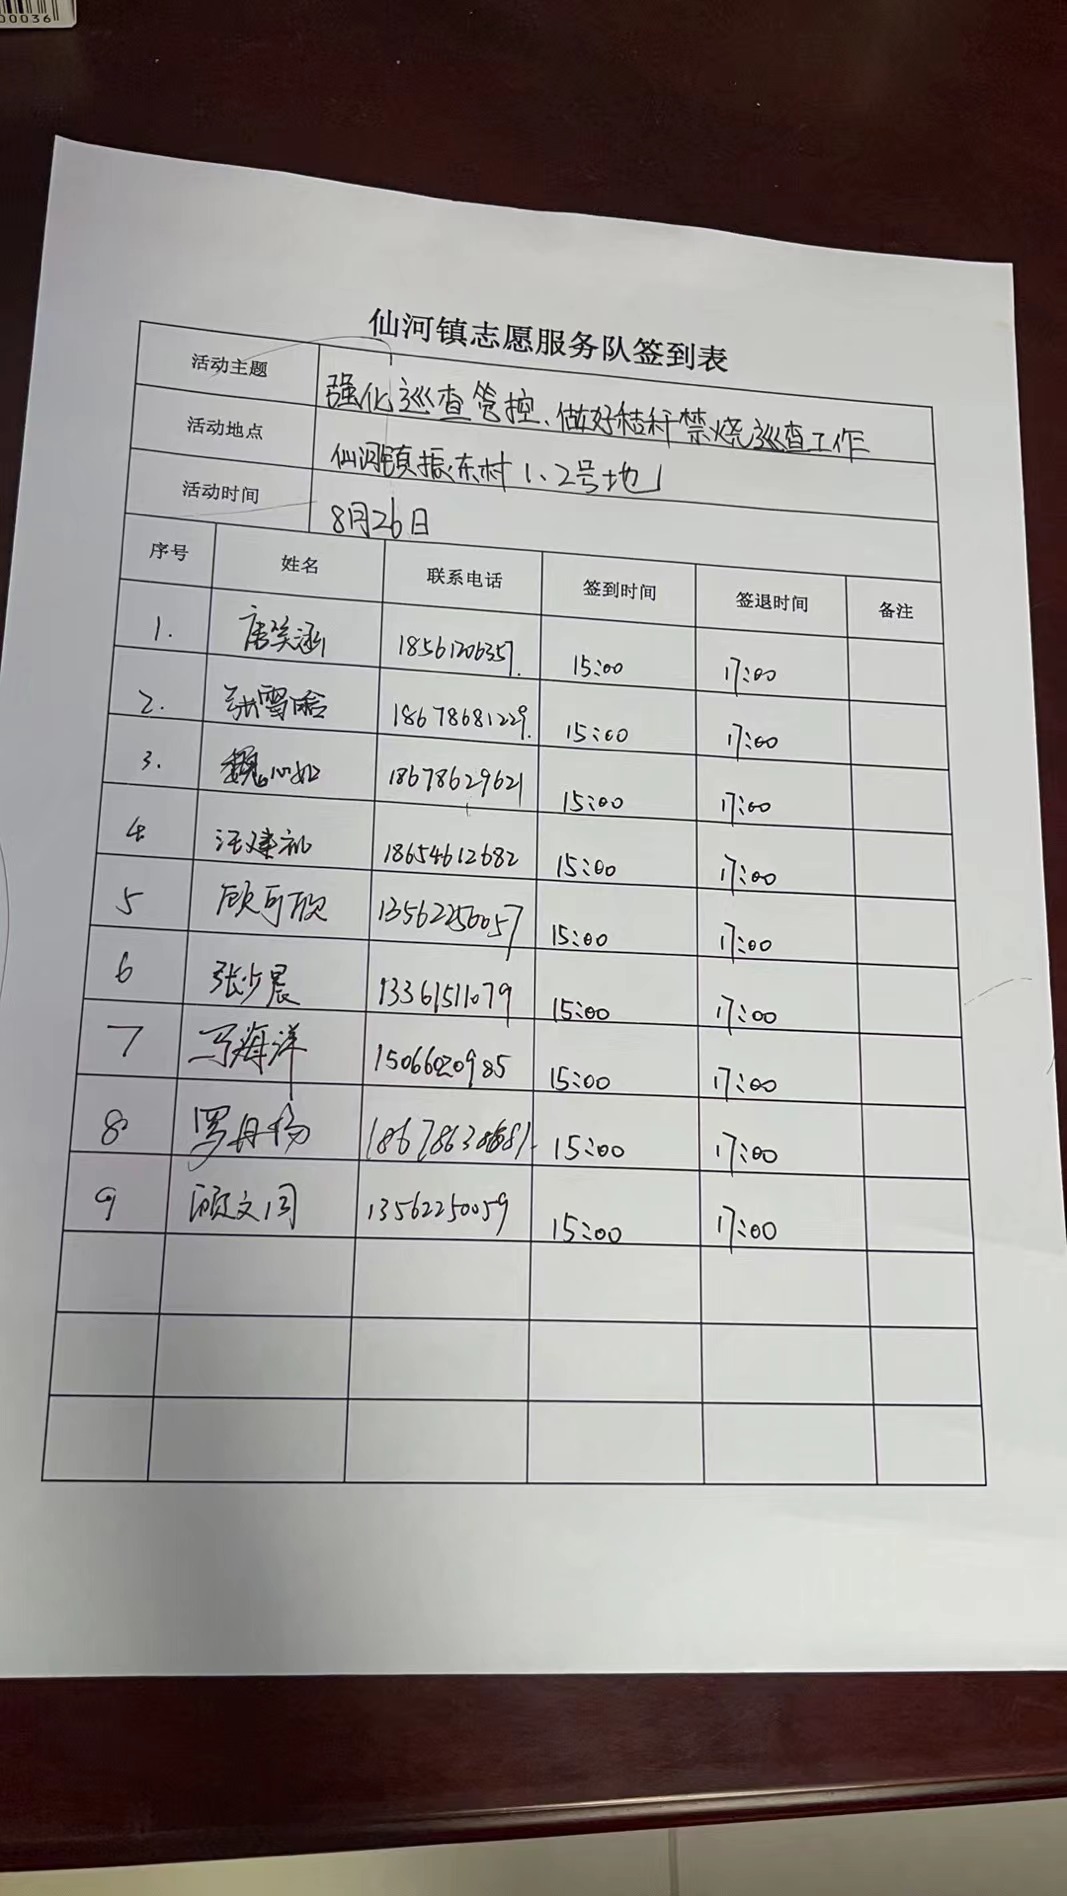 00036
仙河镇志愿服务队签到表
活动主题 强化巡查管控、做好秸秆禁烧巡查工作
活动地点 仙河镇振东村1、2号地
活动时间 8月26日
序号 姓名 联系电话 签到时间 签退时间 备注
1. 唐笑涵 18561206357. 15:00 17:00
2. 张雪晗 18678681229. 15:00 17:00
3. 魏心如 18678629621 15:00 17:00
4 汪建礼 18654612682 15:00 17:00
5 顾可欣 13562250057 15:00 17:00
6 张少晨 13361511079 15:00 17:00
7 马海洋 15066020985 15:00 17:00
8 罗丹杨 15:00 17:00
9 顾文同 13562250059 15:00 17:00